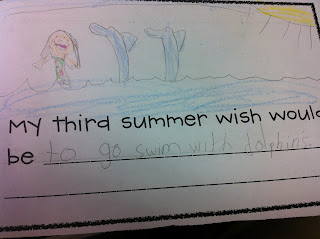 My third summer wish would
be to go swim with dolphins